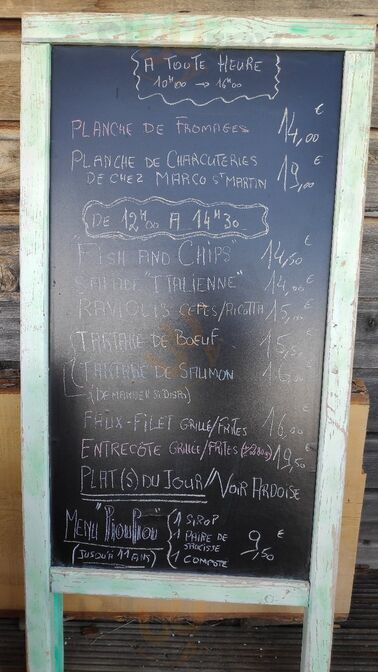 A TOUTE HEURE
10H00 → 16H00
PLANCHE DE FROMAGES 14,00 €
PLANCHE DE CHARCUTERIES
DE CHEZ MARCO ST MARTIN 19,00 €
DE 12H00 A 14H30
"FISH AND CHIPS" 14,50 €
SALADE "ITALIENNE" 14,00 €
RAVIOLIS CEPES/RICOTTA 15,00 €
TARTARE DE BOEUF 15,50 €
TARTARE DE SAUMON 16,00 €
(DEMANDER SI DISPO)
FAUX-FILET GRILLÉ/FRITES 16,00 €
ENTRECÔTE GRILLÉE/FRITES 19,50 €
PLAT(S) DU JOUR // VOIR ARDOISE
MENU "PIOUPIOU" 9,50 €
(JUSQU'À 11 ANS)
1 SIROP
1 PAIRE DE
SAUCISSE
1 COMPOTE